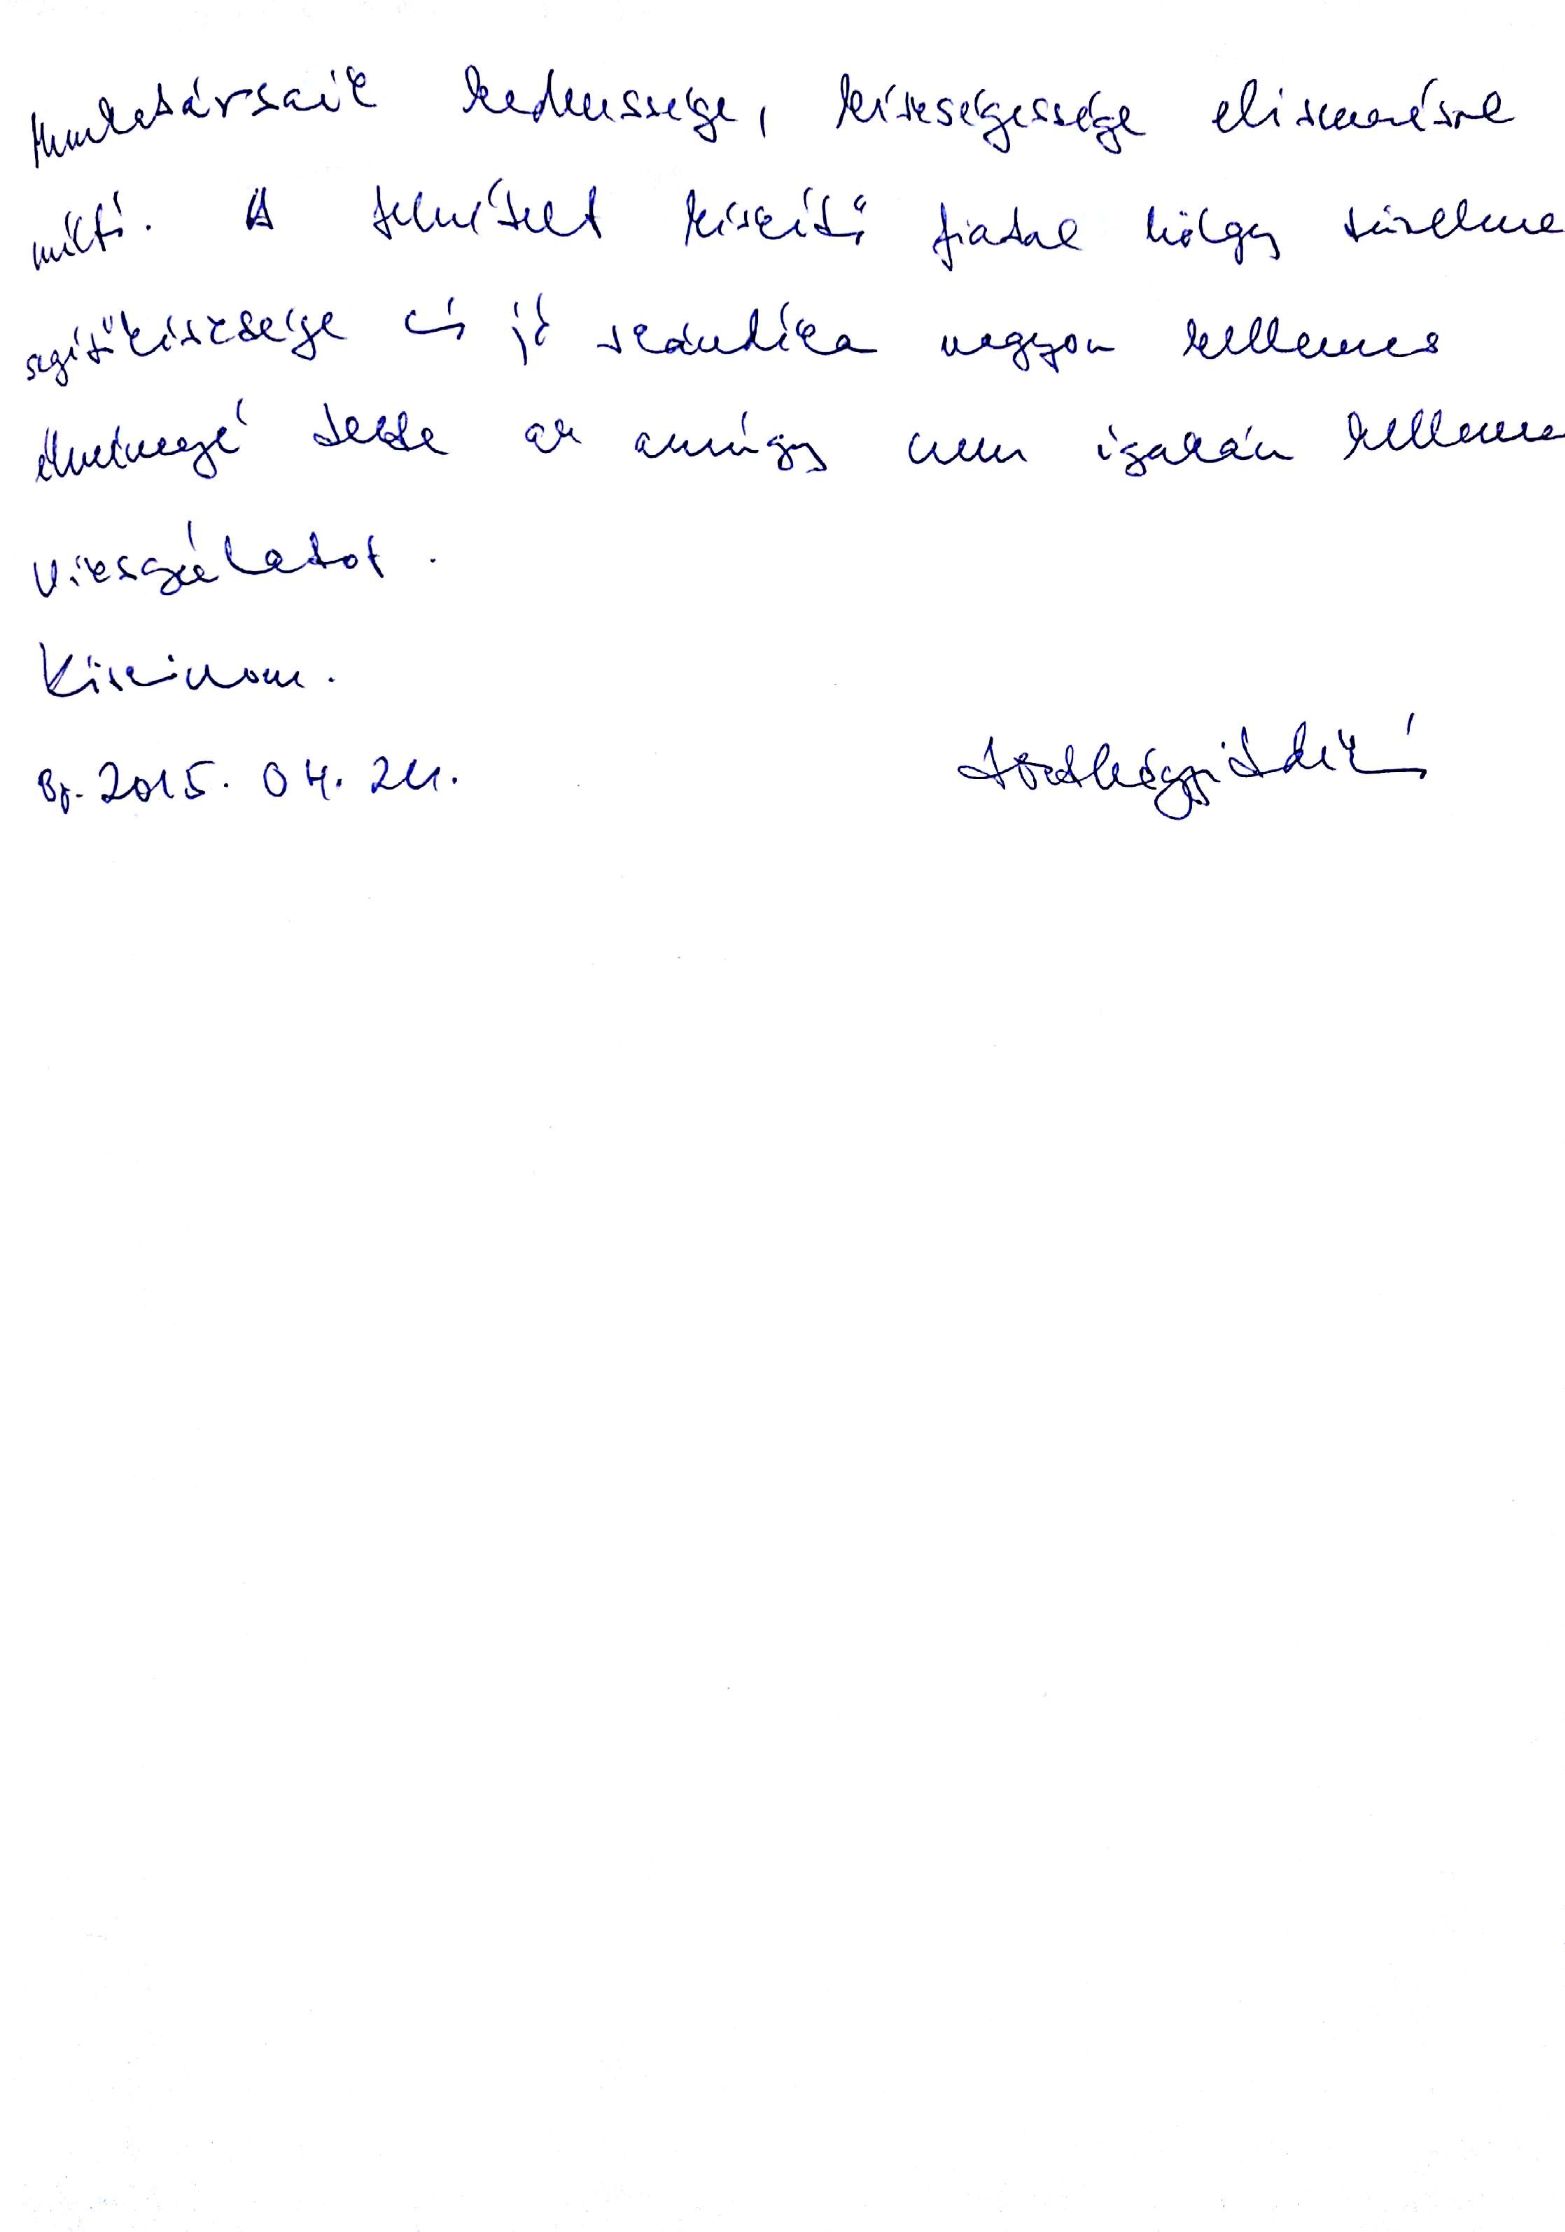 Munkatársaik kedvessége, készségessége elismerésre
méltó. A felvételt készítő fiatal hölgy türelme
segítőkészsége és jó szándéka nagyon kellemes
élménnyé tette az amúgy nem igazán kelleme
vizsgálatot.
Köszönöm.
Bp. 2015. 04. 24.